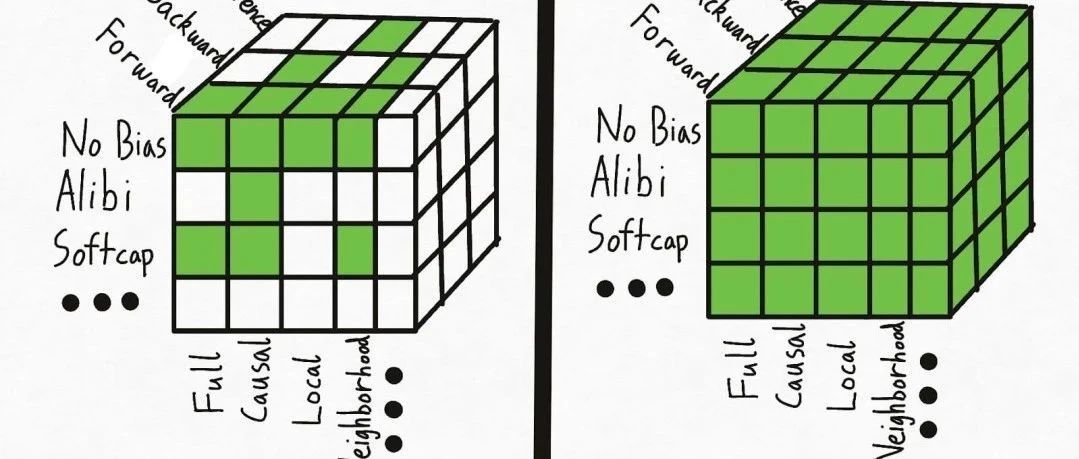 Backward
Forward
No Bias
Alibi
Softcap
Full
Causal
Local
Backward
Forward
No Bias
Alibi
Softcap
Full
Causal
Local
Neighborhood